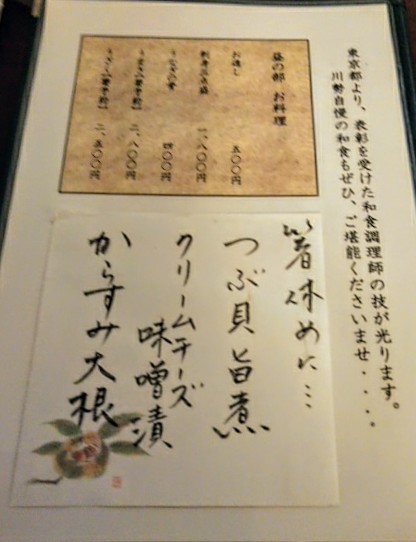 東京都より、表彰を受けた和食調理師の技が光ります。
川勢自慢の和食もぜひ、ご堪能くださいませ・・・・
昼の部 お料理
お通し 五〇〇円
刺身三点盛 一、八〇〇円
うなぎの骨 四〇〇円
うまき【要予約】 二、八〇〇円
うざく【要予約】 二、五〇〇円
箸休めに…
つぶ貝旨煮
クリームチーズ
味噌漬
からすみ大根